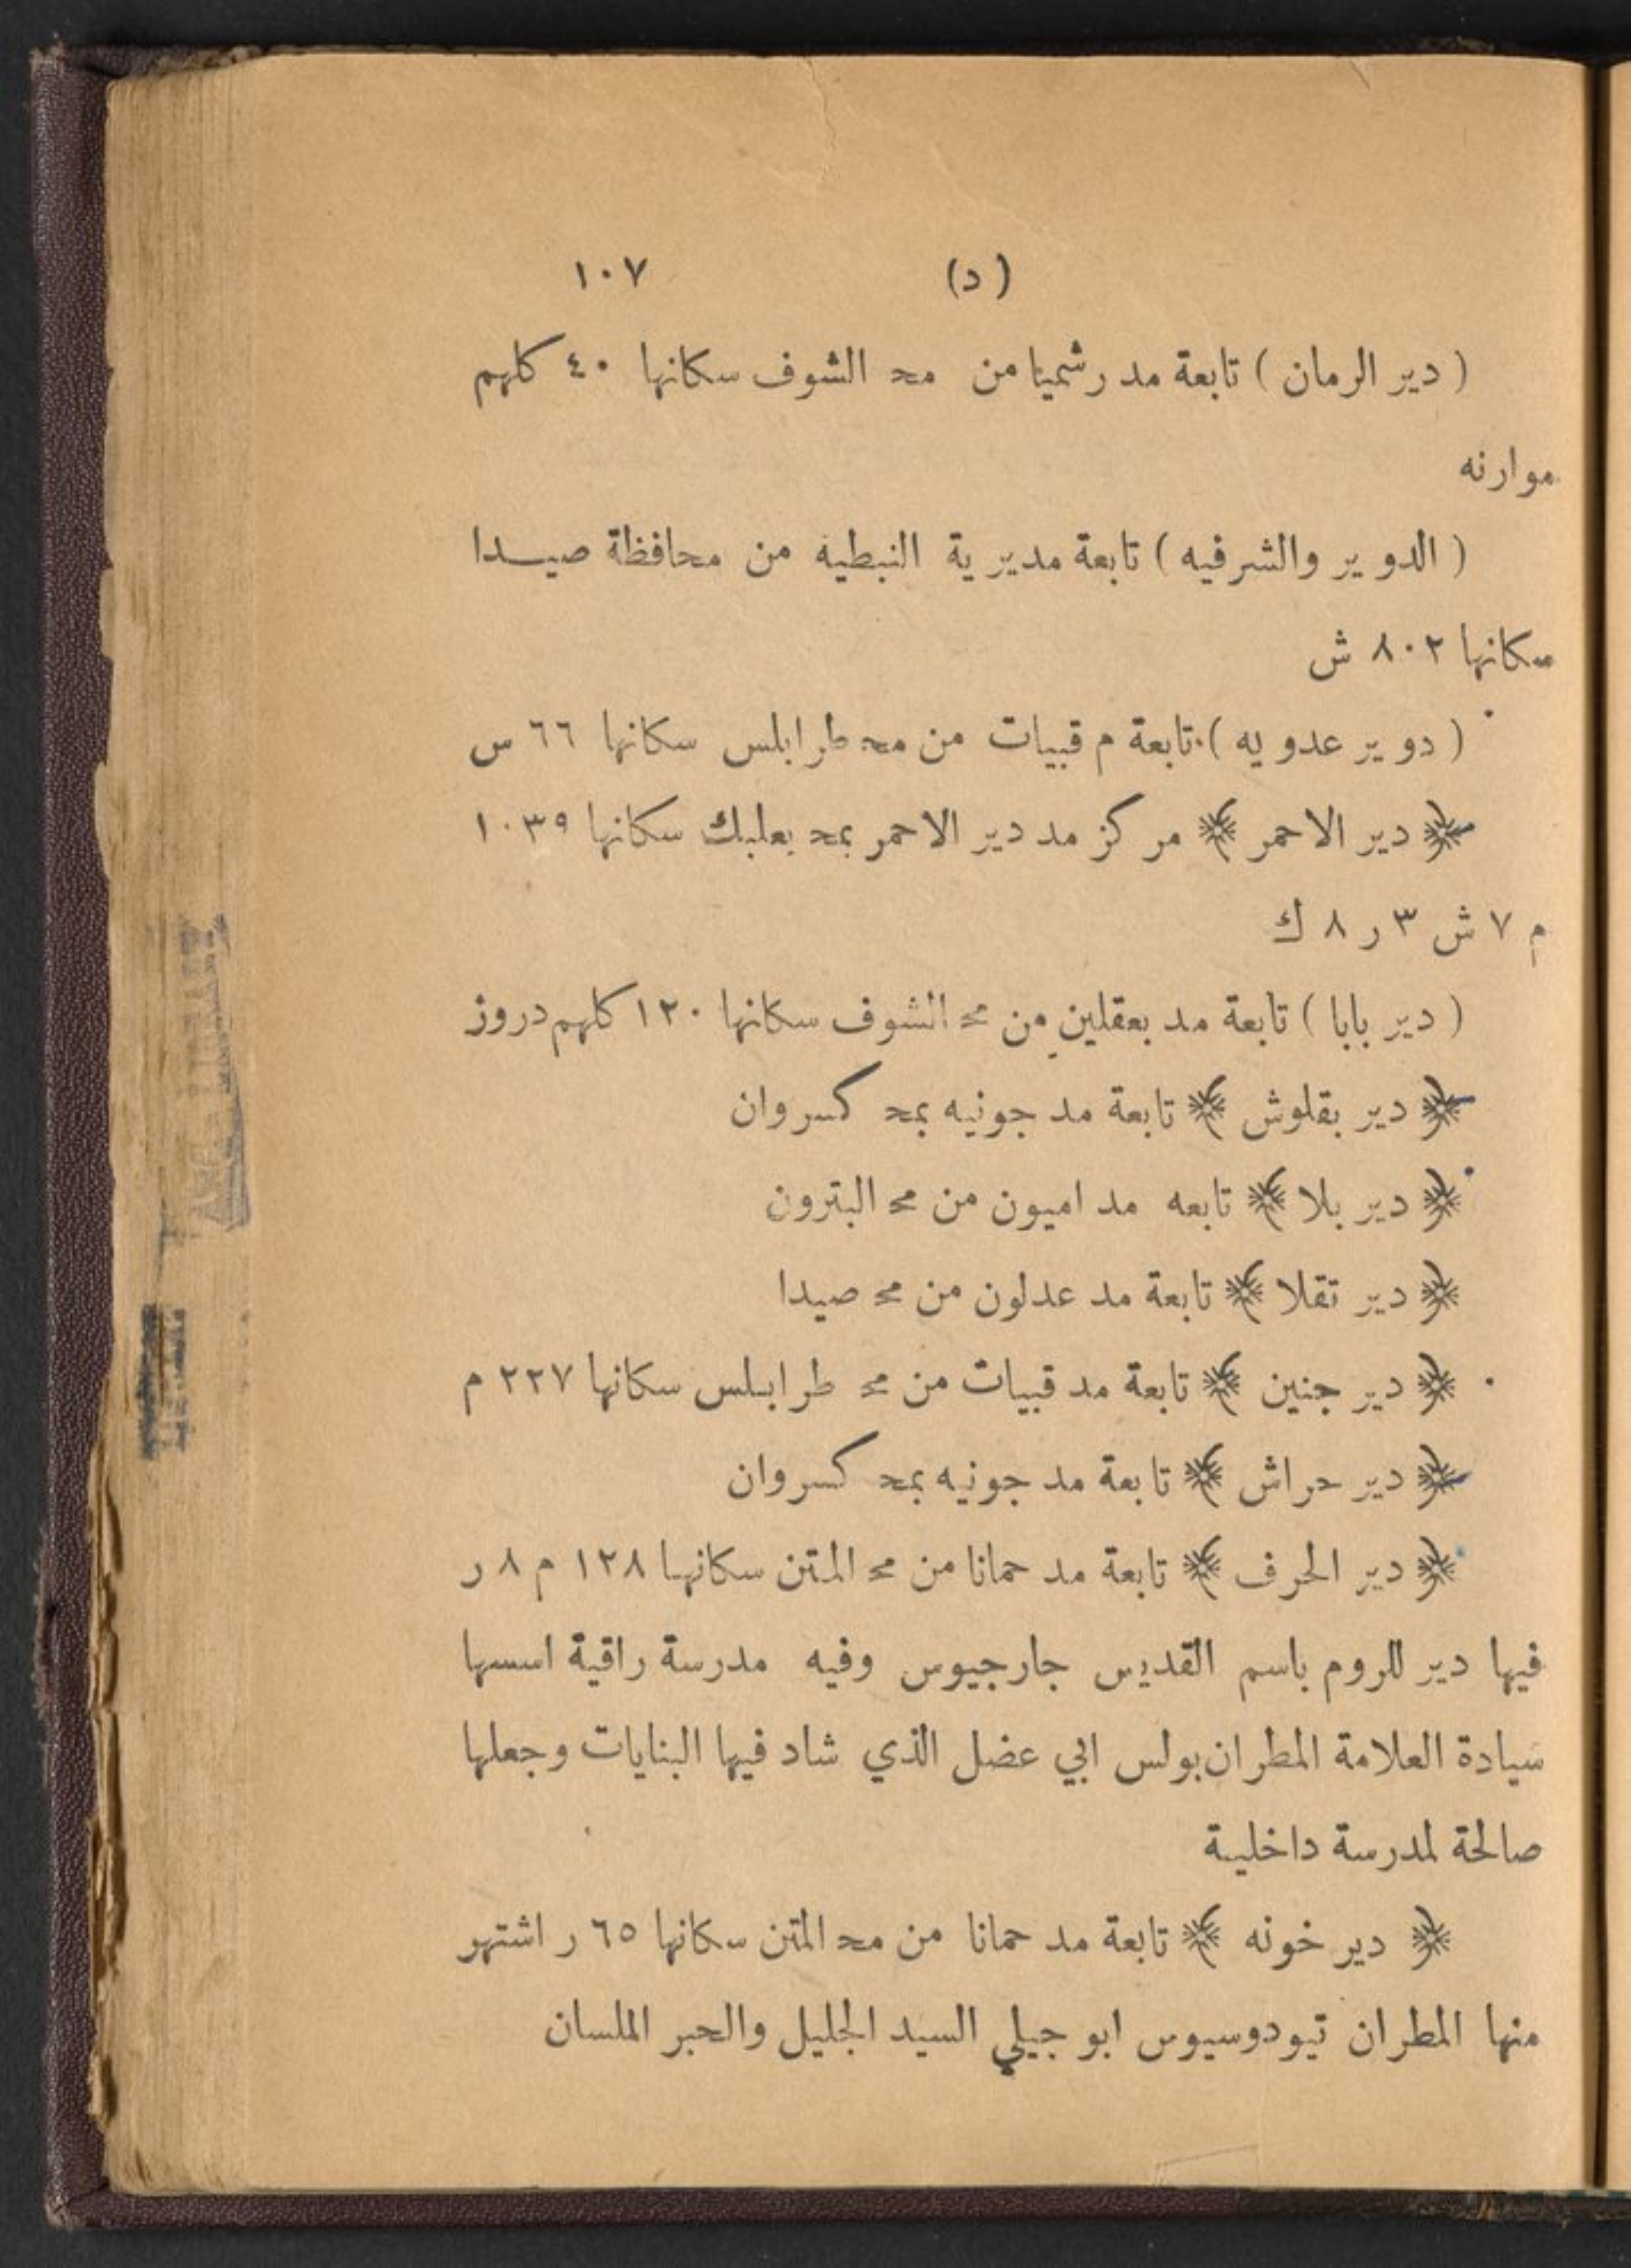 (د) ١٠٧
( دير الرمان ) تابعة مد رشميا من مح الشوف سكانها ٤٠ كلهم
موارنه
( الدوير والشرفيه ) تابعة مديرية النبطيه من محافظة صيدا
سكانها ٨٠٢ ش
( دوير عدويه ) تابعة م قبيات من مح طرابلس سكانها ٦٦ س
﴿ دير الاحمر ﴾ مركز مد دير الاحمر بمح بعلبك سكانها ١٠٣٩
م ٧ ش ٣ ر ٨ ك
( دير بابا ) تابعة مد بعقلين من مح الشوف سكانها ١٢٠ كلهم دروز
﴿ دير بقلوش ﴾ تابعة مد جونيه بمح كسروان
﴿ دير بلا ﴾ تابعه مد اميون من مح البترون
﴿ دير تقلا ﴾ تابعة مد عدلون من مح صيدا
﴿ دير جنين ﴾ تابعة مد قبيات من مح طرابلس سكانها ٢٢٧ م
﴿ دير حراش ﴾ تابعة مد جونيه بمح كسروان
﴿ دير الحرف ﴾ تابعة مد حمانا من مح المتن سكانها ١٢٨ م ٨ ر
فيها دير للروم باسم القديس جارجيوس وفيه مدرسة راقية اسسها
سيادة العلامة المطران بولس ابي عضل الذي شاد فيها البنايات وجعلها
صالحة لمدرسة داخلية
﴿ دير خونه ﴾ تابعة مد حمانا من مح المتن سكانها ٦٥ ر اشتهر
منها المطران تيودوسيوس ابو جيلي السيد الجليل والحبر الملسان